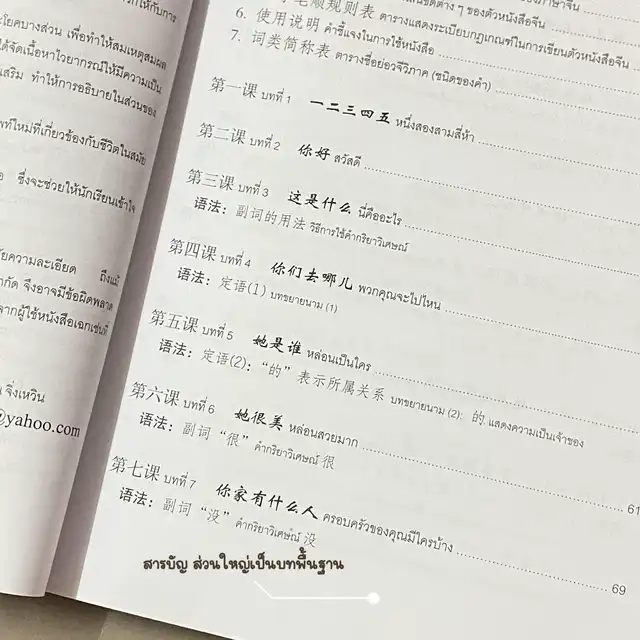 รกให้กับการ
ะโยคบางส่วน เพื่อทำให้สมเหตุสมผล
ได้จัดเนื้อหาไวยากรณ์ให้มีความเป็น
เสริม ทำให้การอธิบายในส่วนของ
พท์ใหม่ที่เกี่ยวข้องกับชีวิตในสมัย
ซึ่งจะช่วยให้นักเรียนเข้าใจ
ัยความละเอียด ถึงแม้
ากัด จึงอาจมีข้อผิดพลาด
ากผู้ใช้หนังสือเอกเช่นที่
จิ่งเหวิน
@yahoo.com
ต่าง ๆ ของตัวหนังสือจีน
笔顺规则表 ตารางแสดงระเบียบกฎเกณฑ์ในการเขียนตัวหนังสือจีน
6. 使用说明 คำชี้แจงในการใช้หนังสือ
7. 词类简称表 ตารางชื่อย่อวจีวิภาค (ชนิดของคำ)
第一课 บทที่ 1 一二三四五 หนึ่งสองสามสี่ห้า
第二课 บทที่ 2 你好 สวัสดี
第三课 บทที่ 3 这是什么 นี่คืออะไร
语法: 副词的用法 วิธีการใช้คำกริยาวิเศษณ์
第四课 บทที่ 4 你们去哪儿 พวกคุณจะไปไหน
语法: 定语(1) บทขยายนาม (1)
第五课 บทที่ 5 她是谁 หล่อนเป็นใคร
语法: 定语(2): “的” 表示所属关系 บทขยายนาม (2): 的 แสดงความเป็นเจ้าของ
第六课 บทที่ 6 她很美 หล่อนสวยมาก
语法: 副词 “很” คำกริยาวิเศษณ์ 很
61
第七课 บทที่ 7 你家有什么人 ครอบครัวของคุณมีใครบ้าง
语法: 副词 “没” คำกริยาวิเศษณ์ 没
69
สารบัญ ส่วนใหญ่เป็นบทพื้นฐาน